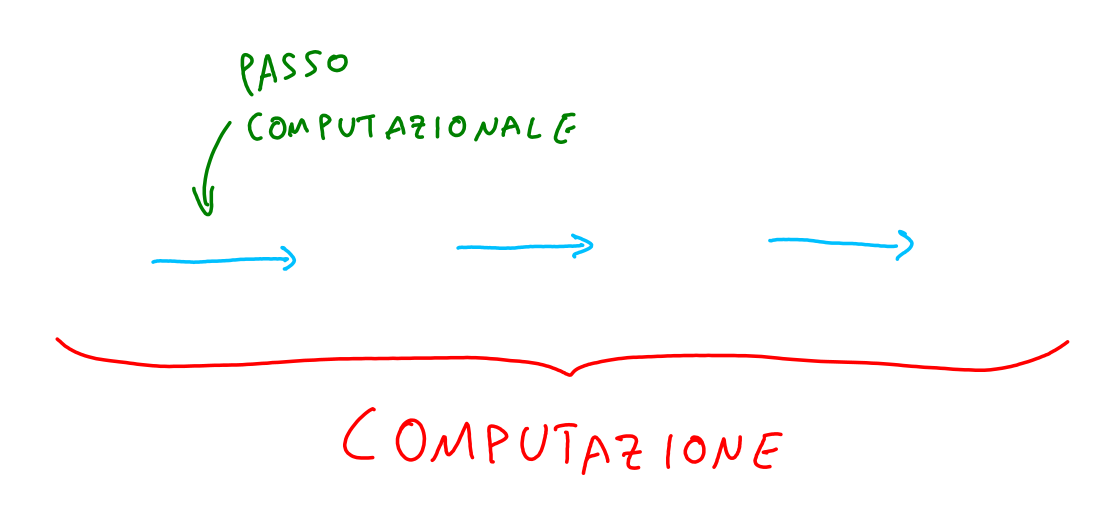 PASSO
COMPUTAZIONALE
COMPUTAZIONE